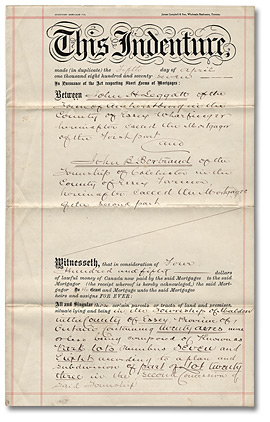 This Indenture,
made (in duplicate) the fifth day of April
one thousand eight hundred and seventy-seven
In Pursuance of the Act respecting Short Forms of Mortgages:
Between John H Leggatt of the
Town of Amherstburg in the
County of Essex Wharfinger
hereinafter called the Mortgagor
of the first part
and
John B. Bertrand of the
Township of Colchester in the
County of Essex
hereinafter called the Mortgagee
of the second part
Witnesseth, that in consideration of Four
Hundred and fifty dollars
of lawful money of Canada now paid by the said Mortgagee to the said
Mortgagor (the receipt whereof is hereby acknowledged,) the said Mort-
gagor Do th Grant and Mortgage unto the said Mortgagee
heirs and assigns FOR EVER:
All and Singular those certain parcels or tracts of land and premises,
situate lying and being in the Township of Malden
in the County of Essex Province of
Ontario containing twenty acres more
or less being composed of
Lots Numbers Seven and
Eight according to a plan and
subdivision of part of Lot twenty
three in the second Concession of
said Township